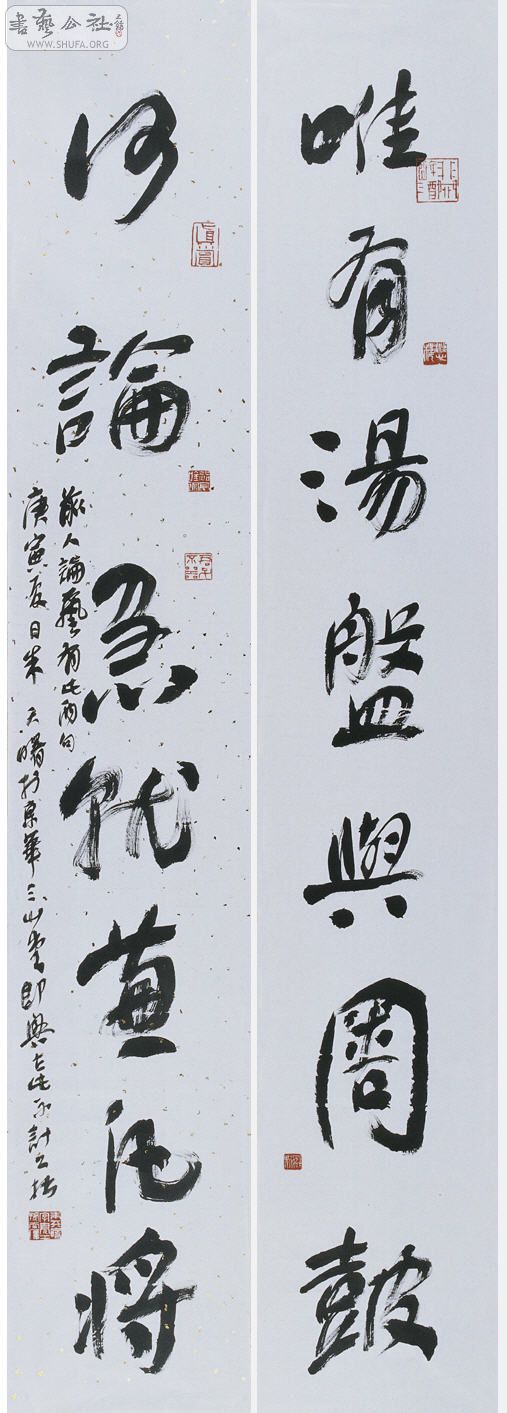 書藝公社
WWW.SHUFA.ORG
唯有湯盤與周鼓
何論急就兼凡將
人論藝有此兩句
庚寅夏日朱天曙於京華三山堂即興書此不計工拙